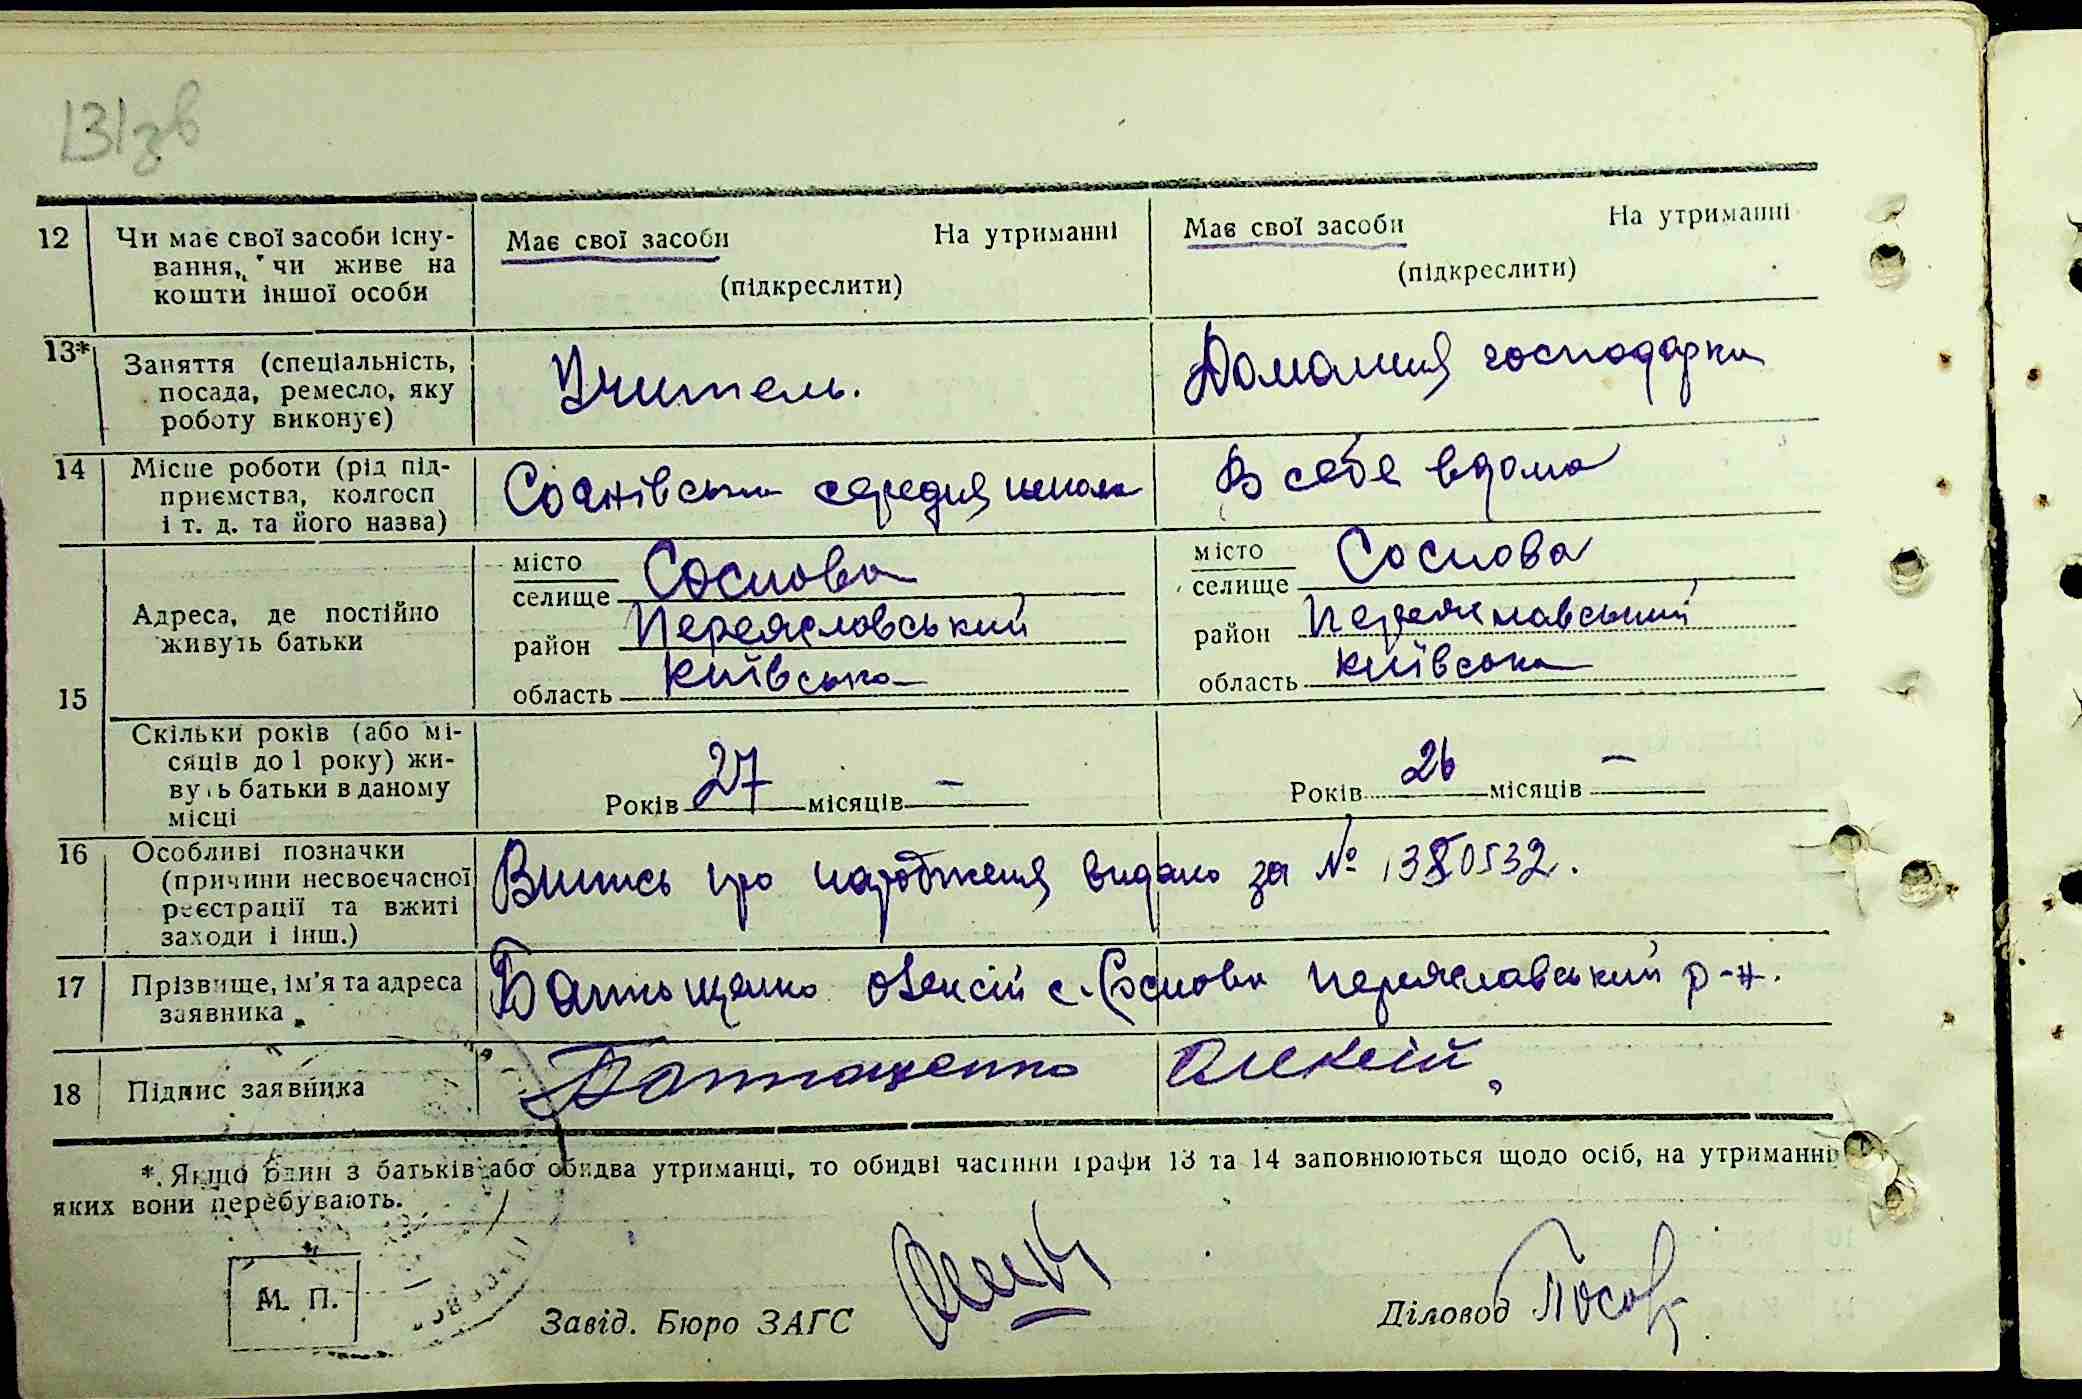 131зв
12 Чи має свої засоби існу-
вання, чи живе на
кошти іншої особи
Має свої засоби На утриманні
(підкреслити)
Має свої засоби На утриманні
(підкреслити)
13* Заняття (спеціальність,
посада, ремесло, яку
роботу виконує)
Учитель.
Домашня господарка
14 Місце роботи (рід під-
приємства, колгосп
і т. д. та його назва)
Соснівська середня школа
В себе вдома
15 Адреса, де постійно
живуть батьки
місто
селище Соснова
район Переяславський
область Київська
місто
селище Соснова
район Переяславський
область Київська
Скільки років (або мі-
сяців до 1 року) жи-
вуть батьки в даному
місці
Років 27 місяців —
Років 26 місяців —
16 Особливі позначки
(причини несвоєчасної
реєстрації та вжиті
заходи і інш.)
Витись про народженя видано за № 1380532.
17 Прізвище, ім'я та адреса
заявника
Батющенко Олексій с. Соснова Переяславський р-н.
18 Підпис заявника
Батющенко Олексій,
*. Якщо один з батьків або обидва утриманці, то обидві частини графи 13 та 14 заповнюються щодо осіб, на утриманні
яких вони перебувають.
М. П.
Завід. Бюро ЗАГС
Діловод